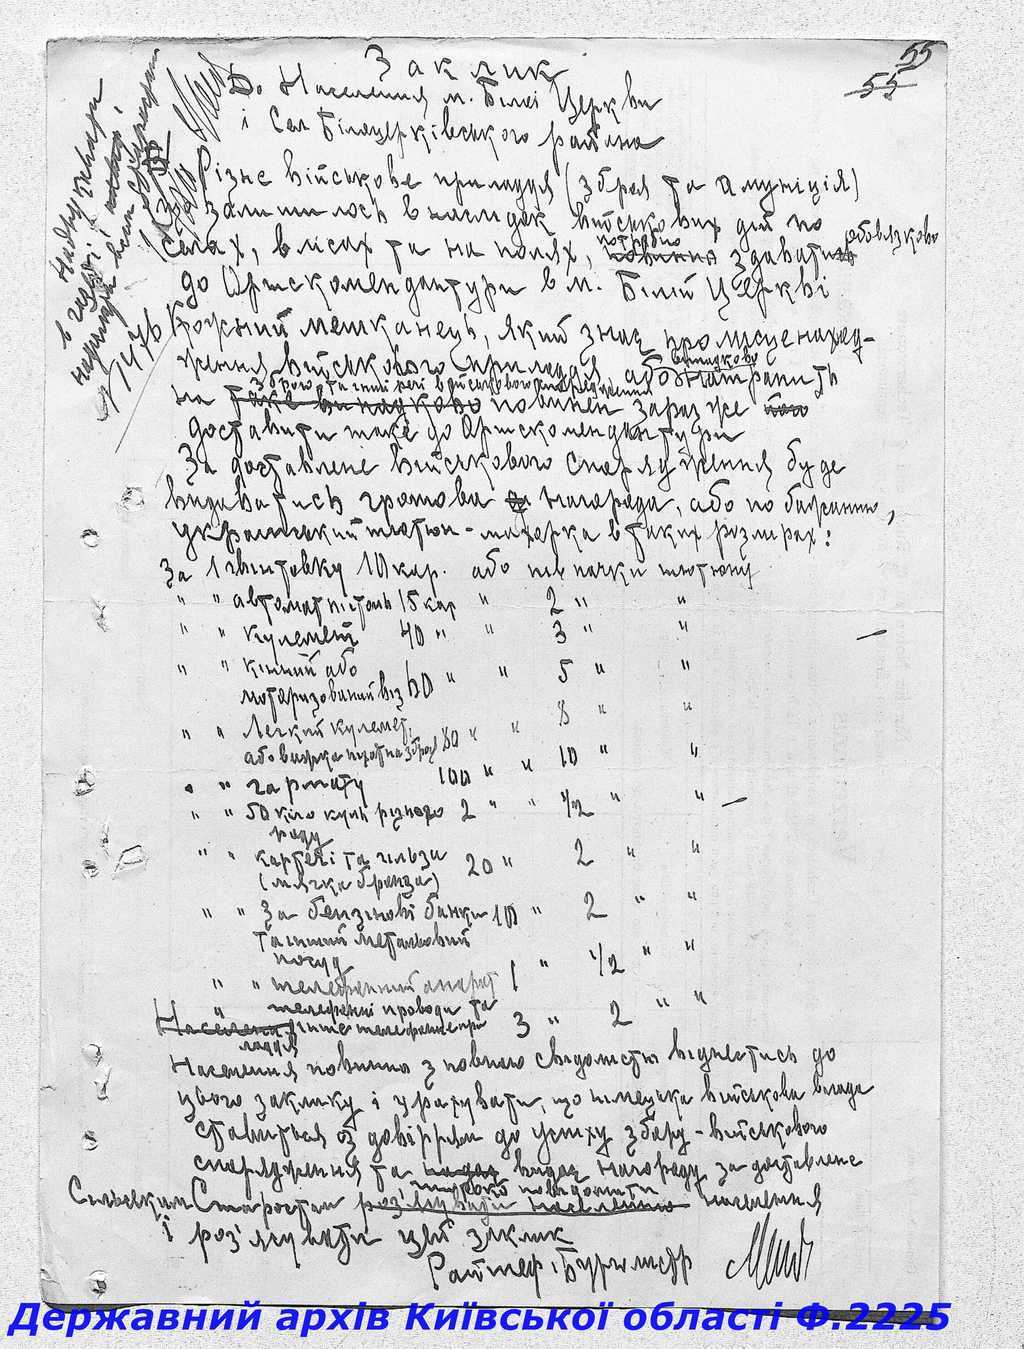 55
55
Заклик
До Населення м. Білої Церкви
і Сел Білоцерківського района
Надрукувати
в газеті і
1476
Різне військове приладдя (зброя та амуніція)
залишилось внаслідок військових дій по
селах, в лісах та на полях, потрібно повинно здавати обовязково
до Ортскомендантури в м. Білій Церкві
Кожний мешканець, який знає про місце находження
військового приладдя або випадково натрапить
на зброю та инші речі військового спорядження таке випадково повинен зараз же його
доставити таке до Ортскомендантури
За доставлене військового спорядження буде
видаватись грошова нагорода, або по бажанню,
український тютюн-махорка в таких розмірах:
За 1 гвинтовку 10 кар. або пів пачки тютюну
" " автомат пістоль 15 кар " 2 " "
" " кулемет 40 " " 3 " "
" " кінний або
моторизований віз 60 " " 5 " "
" " Легкий кулемет,
або важка піхотна зброя 80 " " 8 " "
" " гармату 100 " " 10 " "
" " 50 кіло куль різного 2 " " 1/2 " "
роду
" " картечі та гільзи 20 " 2 " "
(мягка бронза)
" " За бензінові банки 10 " 2 " "
та інший металевий
посуд
" " телефонний апарат 1 " 1/2 " "
" телефонні проводи та
Населення інше телефонне при 3 " 2 " "
ладдя
Населення повинно з повною свідомістю віднестись до
цього заклику і урахувати, що німецька військова влада
ставиться з довіррям до успіху збору-військового
спорядження та видає нагороду за доставлене
Сільським Старостам широко повідомити роз'яснювати населенню населення
і роз'яснювати цей заклик
Райшеф, Бургомістр
Державний архів Київської області Ф.2225